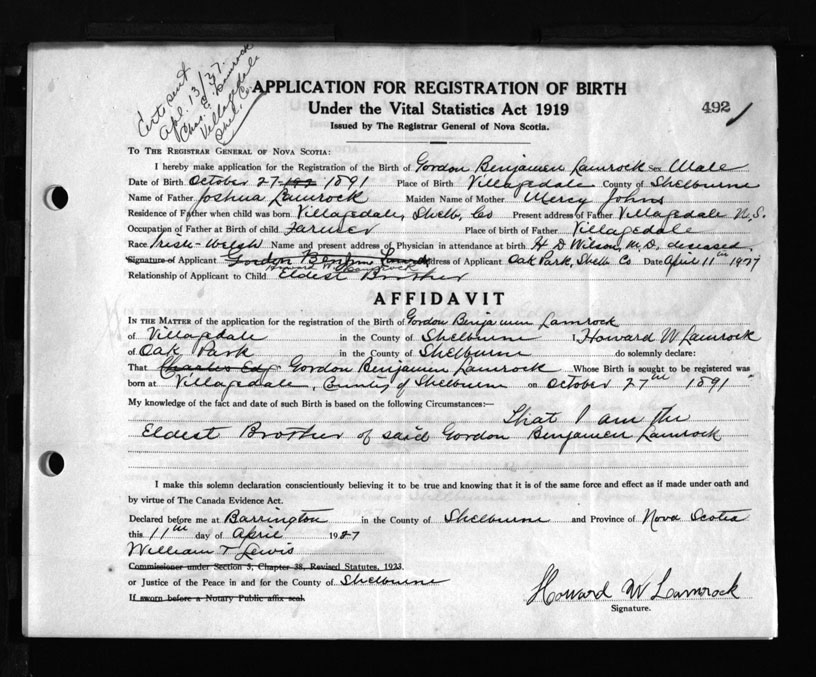 Cert sent
Apl. 13/37.
Chas. E. Lamrock
Villagedale
Shel. Co.
APPLICATION FOR REGISTRATION OF BIRTH
Under the Vital Statistics Act 1919
Issued by The Registrar General of Nova Scotia.
492
TO THE REGISTRAR GENERAL OF NOVA SCOTIA:
I hereby make application for the Registration of the Birth of Gordon Benjamen Lamrock Sex Male
Date of Birth October 27 192 1891 Place of Birth Villagedale County of Shelburne
Name of Father Joshua Lamrock Maiden Name of Mother Mercy Johns
Residence of Father when child was born Villagedale, Shelb, Co Present address of Father Villagedale N.S.
Occupation of Father at Birth of child Farmer Place of birth of Father Villagedale
Race Irish-Welsh Name and present address of Physician in attendance at birth H D Wilson, M.D, deseased.
Signature of Applicant Gordon Benjamin Howard W Lamrock Address of Applicant Oak Park, Shelb Co Date April 11th 1937
Relationship of Applicant to Child Eldest Brother
AFFIDAVIT
IN THE MATTER of the application for the registration of the Birth of Gordon Benjamen Lamrock
of Villagedale in the County of Shelburne I, Howard W Lamrock
of Oak Park in the County of Shelburne do solemnly declare:
That Charles Ed Gordon Benjamen Lamrock Whose Birth is sought to be registered was
born at Villagedale, County of Shelburne on October 27th 1891
My knowledge of the fact and date of such Birth is based on the following Circumstances:—
That I am the
Eldest Brother of said Gordon Benjamen Lamrock
I make this solemn declaration conscientiously believing it to be true and knowing that it is of the same force and effect as if made under oath and
by virtue of The Canada Evidence Act.
Declared before me at Barrington in the County of Shelburne and Province of Nova Scotia
this 11th day of April 1937
William T Lewis
Commissioner under Section 5, Chapter 38, Revised Statutes, 1923.
or Justice of the Peace in and for the County of Shelburne
If sworn before a Notary Public affix seal.
Howard W Lamrock
Signature.